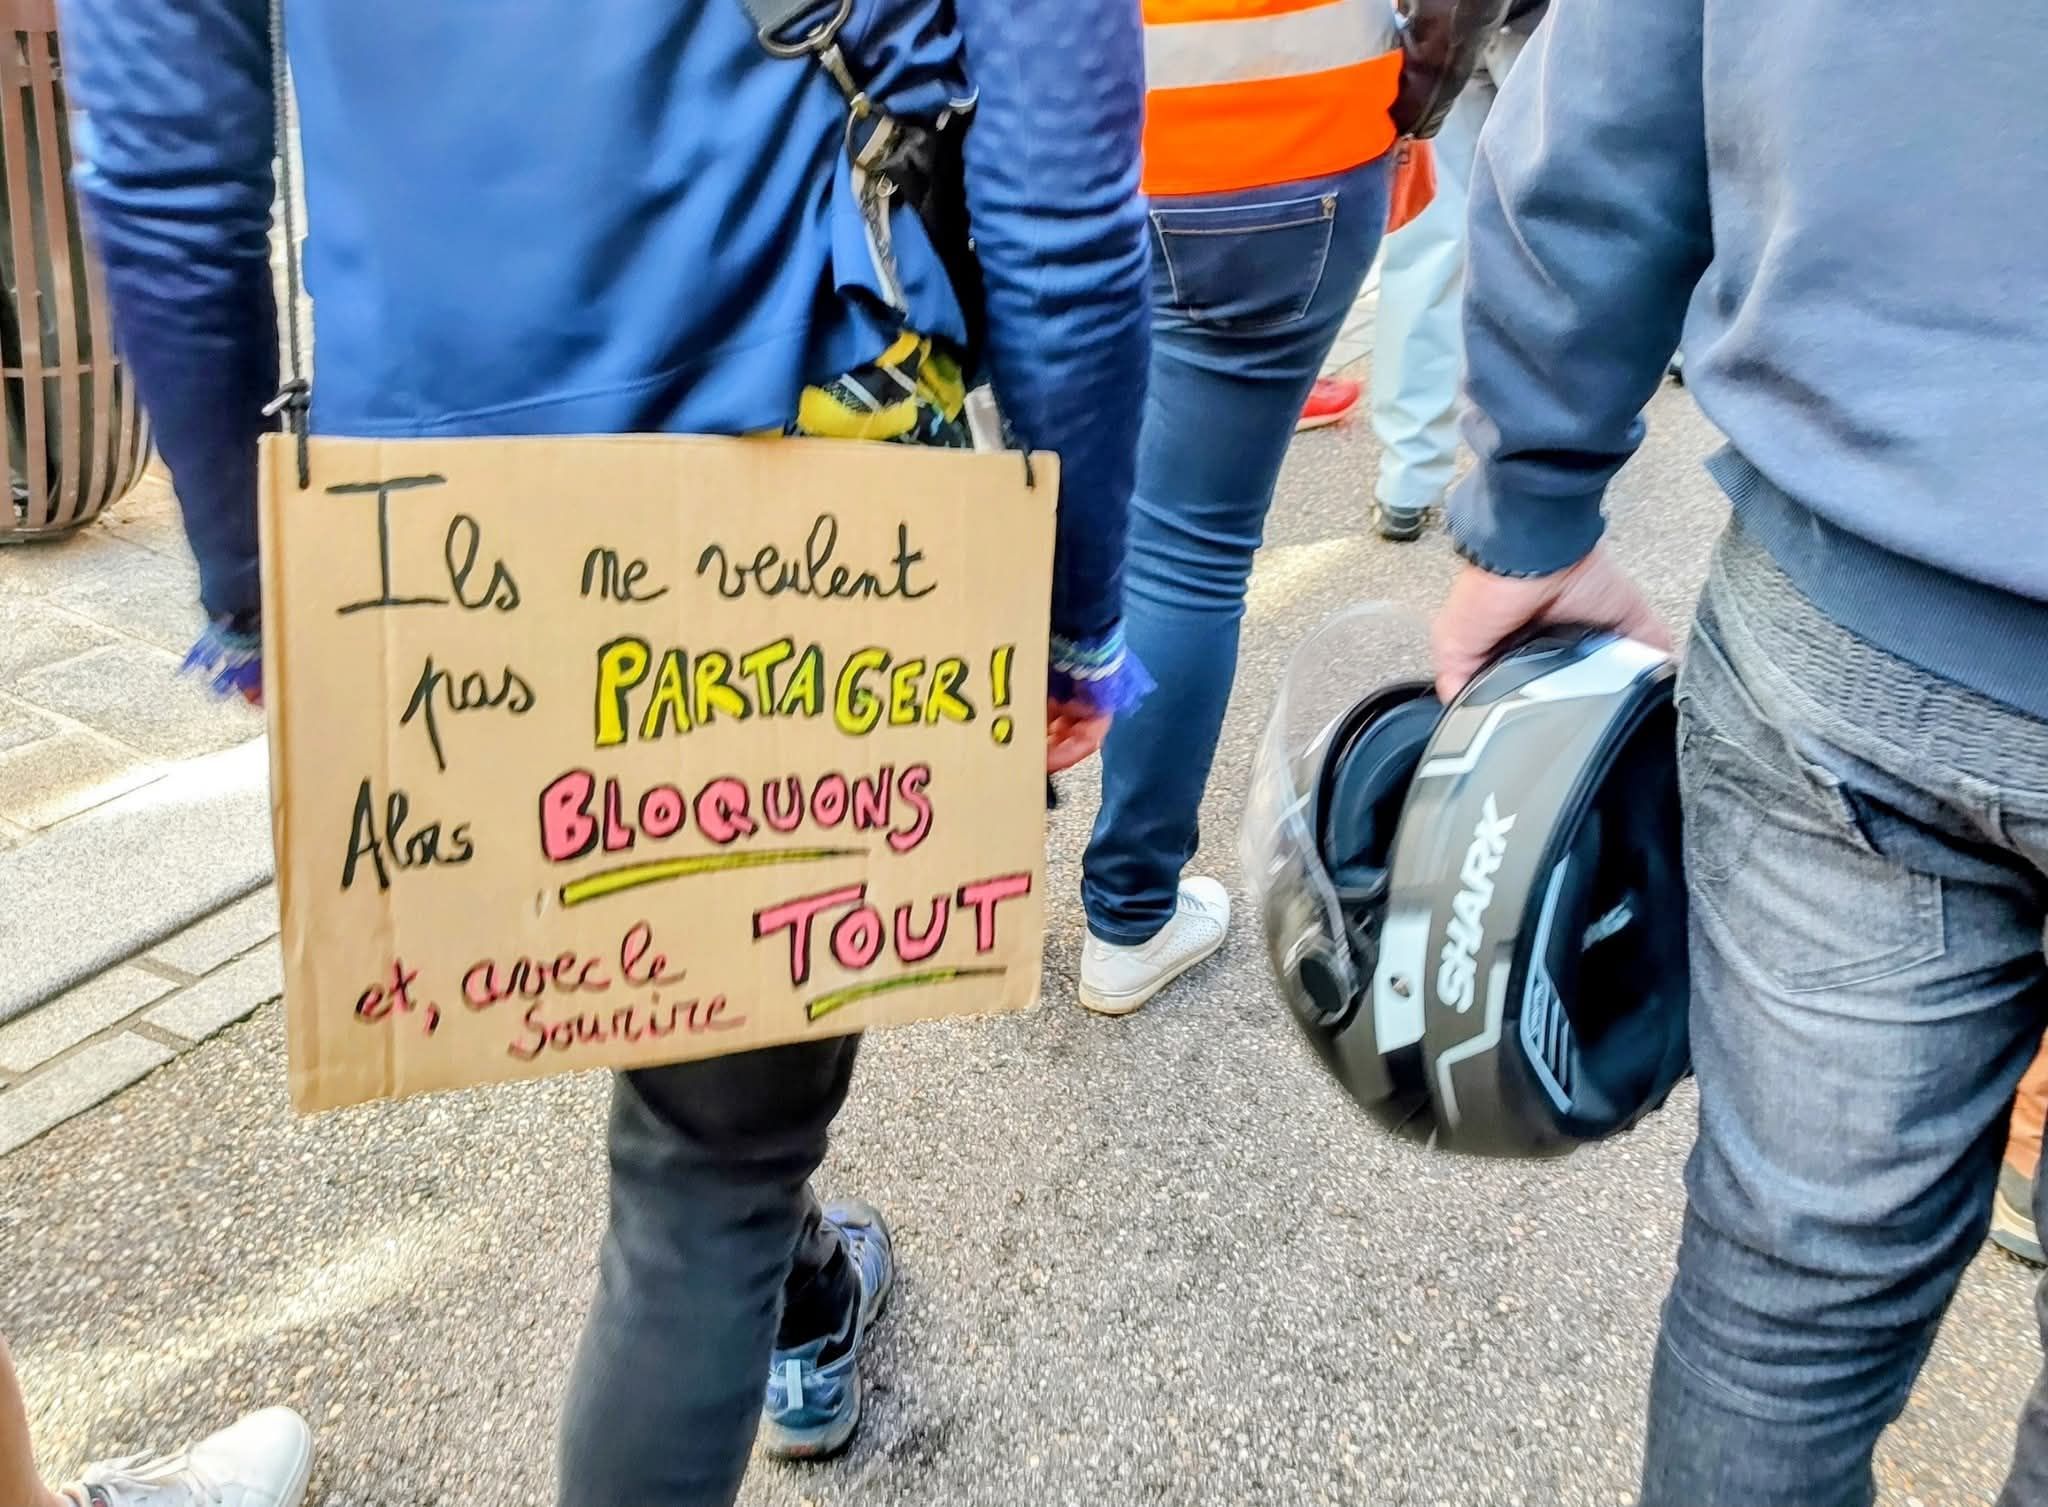 Ils ne veulent
pas PARTAGER!
Alors BLOQUONS
TOUT
et, avec le
sourire
SHARK